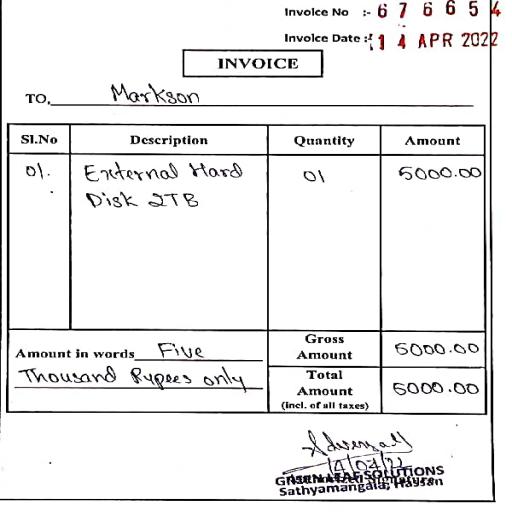 Invoice No :- 6 7 6 6 5 4
Invoice Date :- 14 APR 2022
INVOICE
TO, Markson
Sl.No Description Quantity Amount
01. External Hard 01 5000.00
Disk 2TB
Amount in words Five
Thousand Rupees only
Gross Amount 5000.00
Total Amount (incl. of all taxes) 5000.00
14/04/22
GREEN LEAF SOLUTIONS
Sathyamangala, Hassan